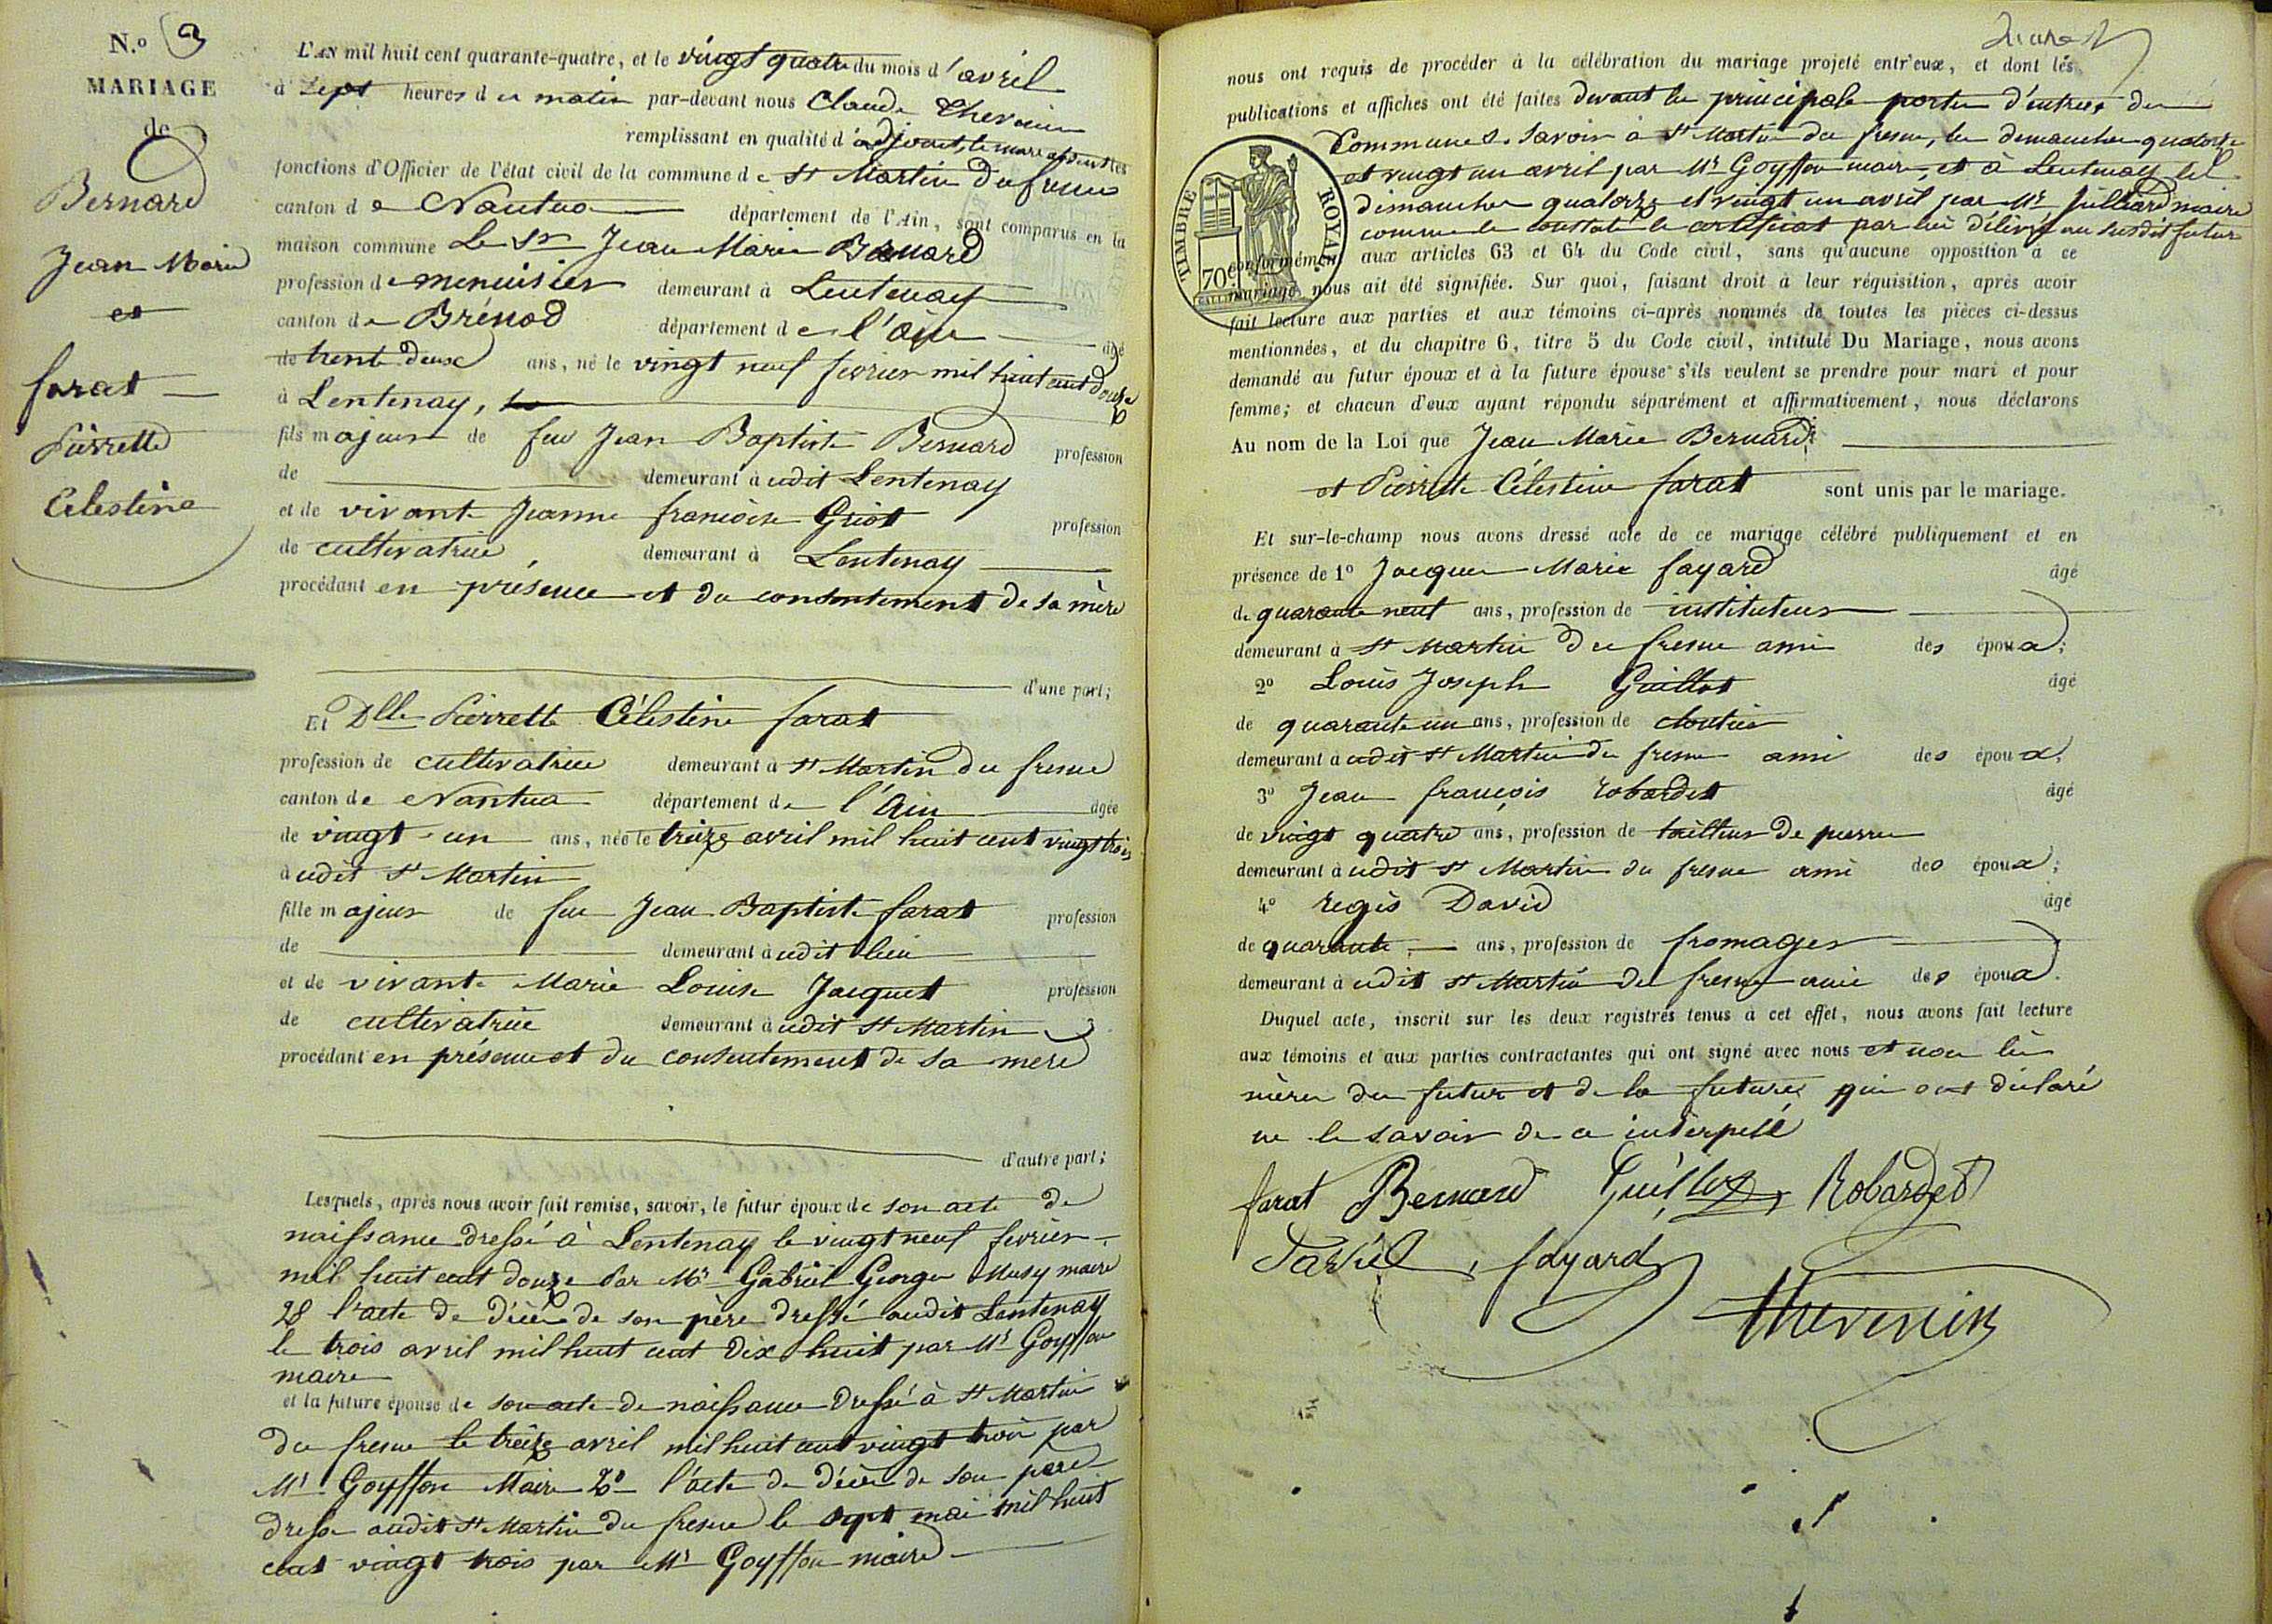 N.o 9
MARIAGE
de
Bernard
Jean Marie
et
farat
Pierrette
Célestine
L'AN mil huit cent quarante-quatre, et le vingt quatre du mois d'avril
à sept heures du matin par-devant nous Claude Thevenin
remplissant en qualité d'adjoint, le maire absent les
fonctions d'Officier de l'état civil de la commune de St Martin du fresne
canton de Nantua département de l'Ain, sont comparus en la
maison commune Le Sr Jean Marie Bernard
profession de menuisier demeurant à Lentenay
canton de Brénod département de l'Ain âgé
de trente deux ans, né le vingt neuf fevrier mil huit cent douze
à Lentenay,
fils majeur de feu Jean Baptiste Bernard profession
de demeurant à udit Lentenay
et de vivante Jeanne françoise Griot profession
de cultivatrice demeurant à Lentenay
procédant en présence et du consentement de sa mère
d'une part;
Et Dlle Pierrette Célestine farat
profession de cultivatrice demeurant à St Martin du fresne
canton de Nantua département de l'Ain âgée
de vingt un ans, née le treize avril mil huit cent vingt trois
à udit St Martin
fille majeur de feu Jean Baptiste farat profession
de demeurant à udit lieu
et de vivante Marie Louise Jacquet profession
de cultivatrice demeurant à udit St Martin
procédant en présence et du consentement de sa mere
d'autre part;
Lesquels, après nous avoir fait remise, savoir, le futur époux de son acte de
naissance dressé à Lentenay le vingt neuf fevrier
mil huit cent douze par Mr Gabriel George Musy maire
2o l'acte de décès de son père dressé audit Lentenay
le trois avril mil huit cent dix huit par Mr Goyffon
maire
et la future épouse de son acte de naissance dressé à St Martin
du fresne le treize avril mil huit cent vingt trois par
Mr Goyffon Maire 2o l'acte de décès de son père
dressé audit St Martin du fresne le sept mai mil huit
cent vingt trois par Mr Goyffon maire
nous ont requis de procéder à la célébration du mariage projeté entr'eux, et dont les
publications et affiches ont été faites devant la principale porte d'entrée de
Communes. Savoir à St Martin du fresne, le dimanche quatorze
et vingt un avril par Mr Goyffon maire, et à Lentenay les
dimanche quatorze et vingt un avril par Mr Julliard maire
comme le constate le certificat par lui délivré au susdit futur
TIMBRE ROYAL
70c
conformément aux articles 63 et 64 du Code civil, sans qu'aucune opposition à ce
mariage nous ait été signifiée. Sur quoi, faisant droit à leur réquisition, après avoir
fait lecture aux parties et aux témoins ci-après nommés de toutes les pièces ci-dessus
mentionnées, et du chapitre 6, titre 5 du Code civil, intitulé Du Mariage, nous avons
demandé au futur époux et à la future épouse s'ils veulent se prendre pour mari et pour
femme; et chacun d'eux ayant répondu séparément et affirmativement, nous déclarons
Au nom de la Loi que Jean Marie Bernard
et Pierrette Célestine farat sont unis par le mariage.
Et sur-le-champ nous avons dressé acte de ce mariage célébré publiquement et en
présence de 1o Jacques Marie fayard âgé
de quarante neuf ans, profession de instituteur
demeurant à St Martin du fresne ami des époux;
2o Louis Joseph Guillot âgé
de quarante un ans, profession de cloutier
demeurant à udit St Martin du fresne ami des époux;
3o Jean françois robardet âgé
de vingt quatre ans, profession de tailleur de pierre
demeurant à udit St Martin du fresne ami des époux;
4o regis David âgé
de quarante ans, profession de fromager
demeurant à udit St Martin du fresne ami des époux.
Duquel acte, inscrit sur les deux registres tenus à cet effet, nous avons fait lecture
aux témoins et aux parties contractantes qui ont signé avec nous et non les
mères du futur et de la future qui ont déclaré
ne le savoir de ce interpellé
farat Bernard Guillot Robardet
fayard
thevenin